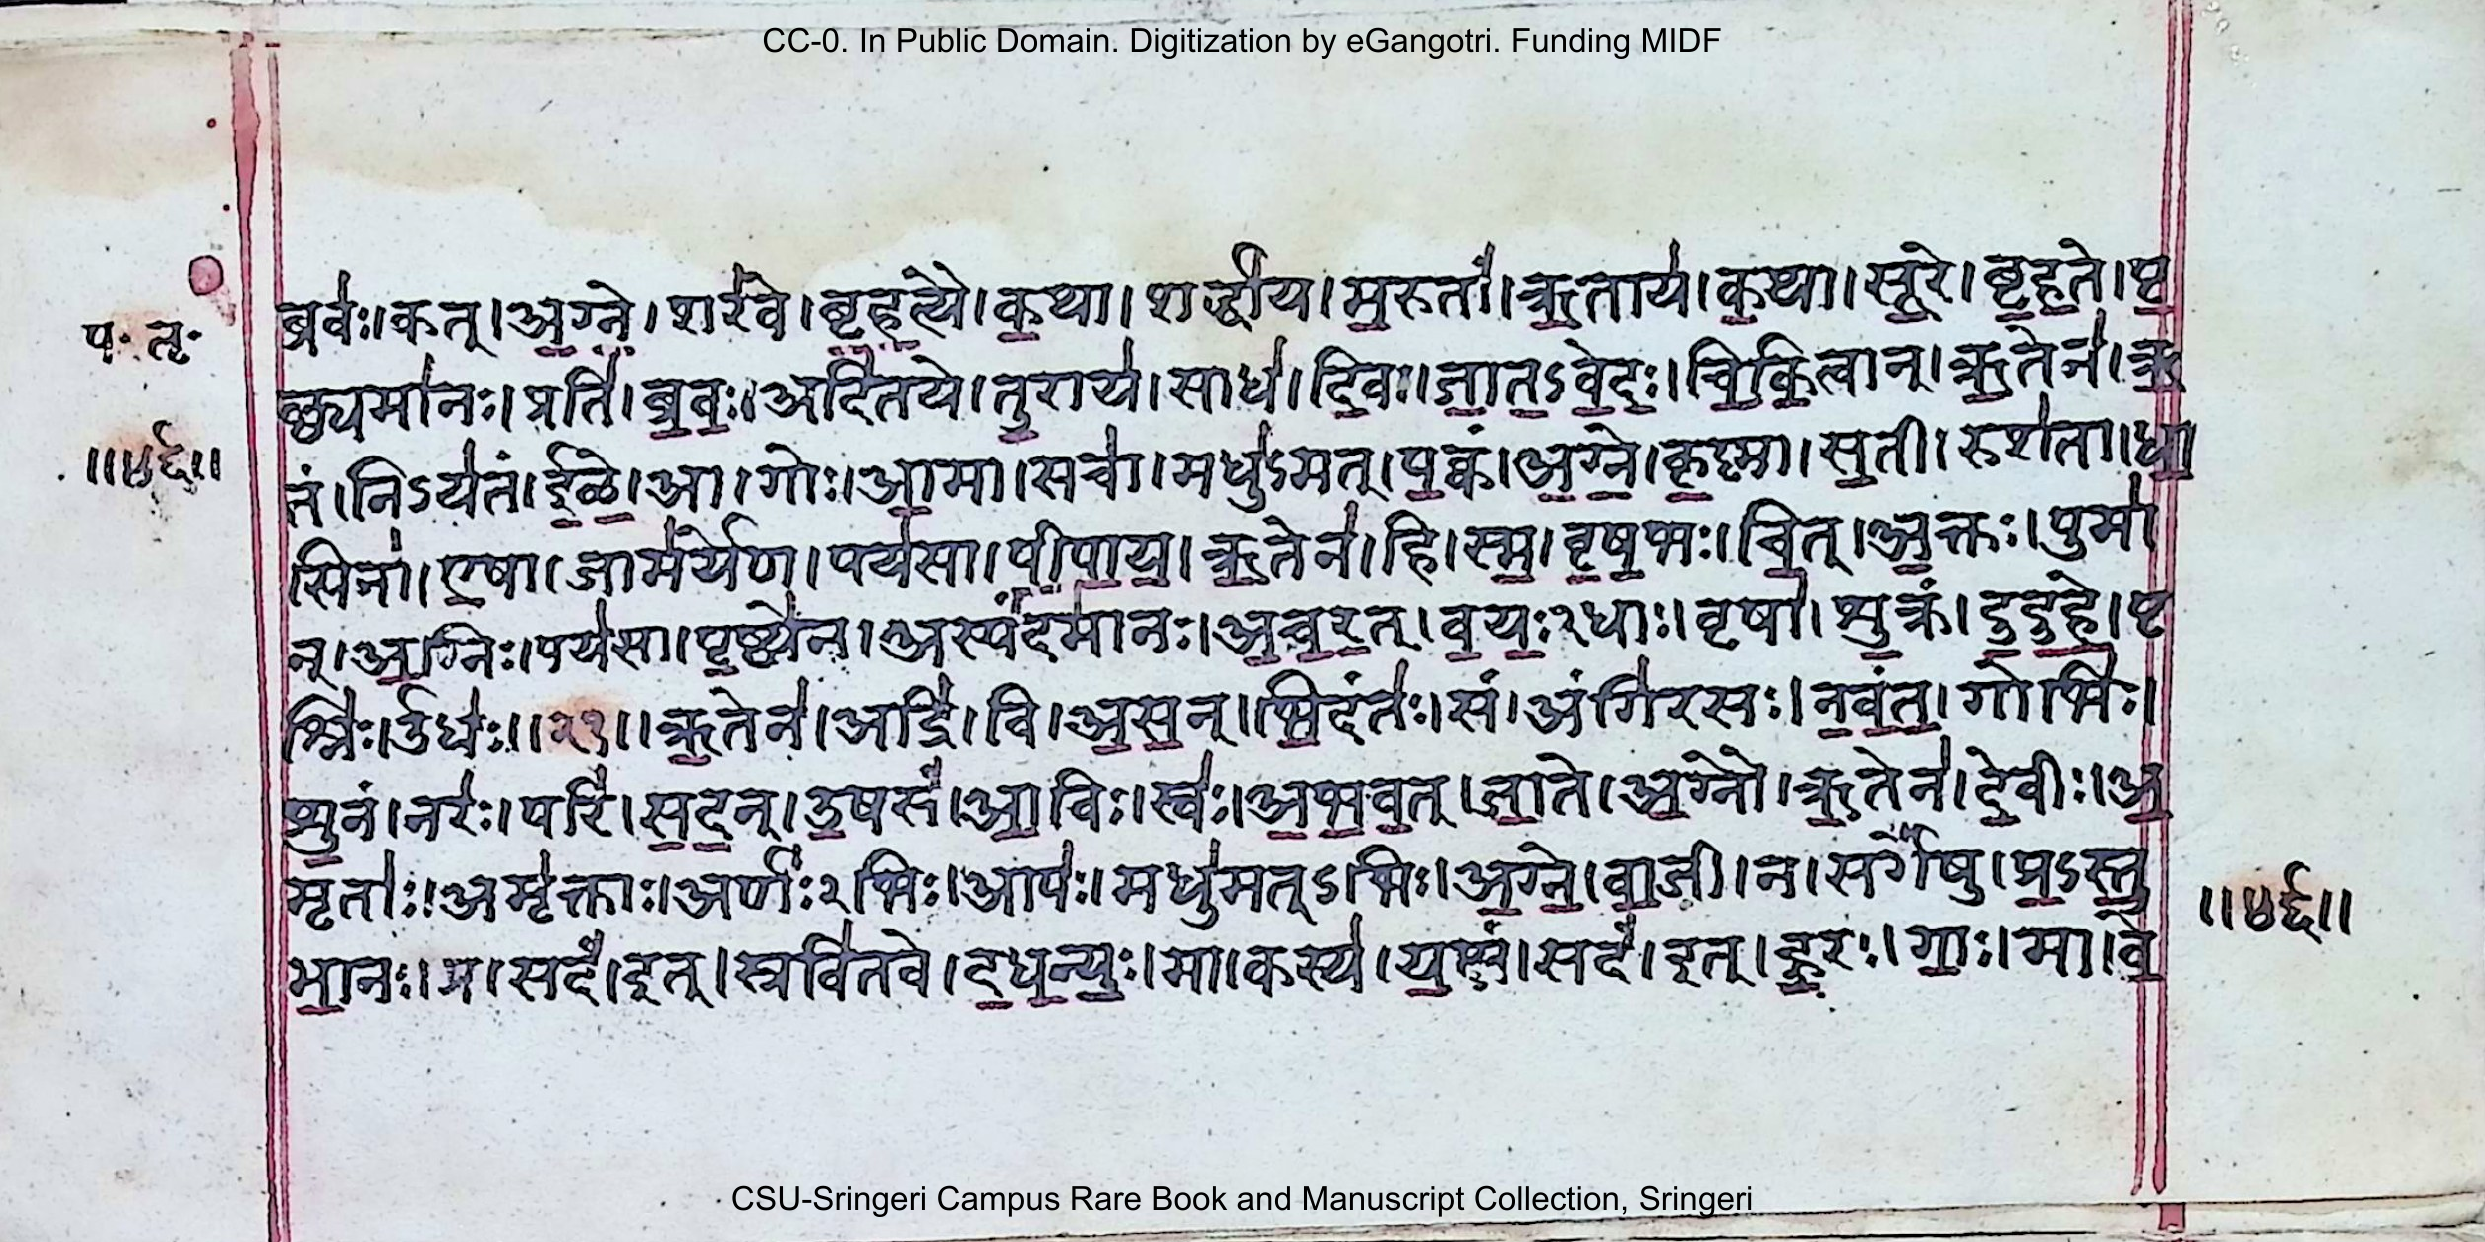 CC-0. In Public Domain. Digitization by eGangotri. Funding MIDF
ब्रवः॑।कत्।अ॒ग्ने॒।शर॑वे।बृ॒ह॒त्यै।क॒था।शर्द्धा॑य।म॒रुतां॑।ऋ॒ताय॑।क॒था।सू॒रे।बृ॒ह॒ते।पृ॒
प॰ तृ॰
छ्यमा॑नः।प्रति॑।ब्र॒वः॒।अदि॑तये।तु॒राय॑।साध॑।दि॒वः।जा॒त॒ऽवे॒दः॒।चि॒कि॒त्वान्।ऋ॒तेन॑।ऋ॒
॥४६॥
तं।निऽय॑तं।ई॒ळे॒।आ।गोः।आ॒मा।सचा॑।मधु॑ऽमत्।प॒क्वं।अ॒ग्ने॒।कृ॒ष्णा।स॒ती।रुश॑ता।धा॒
सिना॑।ए॒षा।जाम॑र्येण।पय॑सा।पी॒पा॒य॒।ऋ॒तेन॑।हि।स्म॒।वृ॒ष॒भः।चि॒त्।अ॒क्तः।पुमा॑
न्।अ॒ग्निः।पय॑सा।पृ॒ष्ठ्ये॑न।अस्पं॑दमानः।अ॒च॒र॒त्।व॒यः॒२धाः।वृषा॑।शु॒क्रं।दु॒दु॒हे॒।पृ
श्निः॑।ऊधः॑॥२१॥ऋ॒तेन॑।अद्रिं॑।वि।अ॒स॒न्।भि॒दंतः॑।सं।अंगि॑रसः।न॒वं॒त॒।गोभिः॑।
शु॒नं।नरः॑।परि॑।स॒द॒न्।उ॒षसं॑।आ॒विः।स्वः॑।अ॒भ॒व॒त्।जा॒ते।अ॒ग्नौ।ऋ॒तेन॑।दे॒वीः।अ॒
मृताः॑।अमृ॑क्ताः।अर्णः॑२भिः।आपः॑।मधु॑मत्ऽभिः।अ॒ग्ने॒।वा॒जी।न।सर्गे॑षु।प्र॒ऽस्तु॒
॥४६॥
भा॒नः।प्र।सदं॑।इत्।स्रवि॑तवे।द॒ध॒न्युः॒।मा।कस्य॑।य॒क्षं।सदं॑।इत्।हु॒रः।गाः॒।मा।वे॒
CSU-Sringeri Campus Rare Book and Manuscript Collection, Sringeri